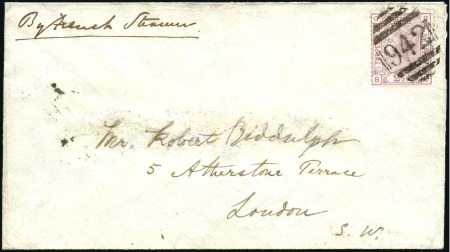 By French Steamer
942
B
Mr. Robert Biddulph
5 Atherstone Terrace
London
S. W.